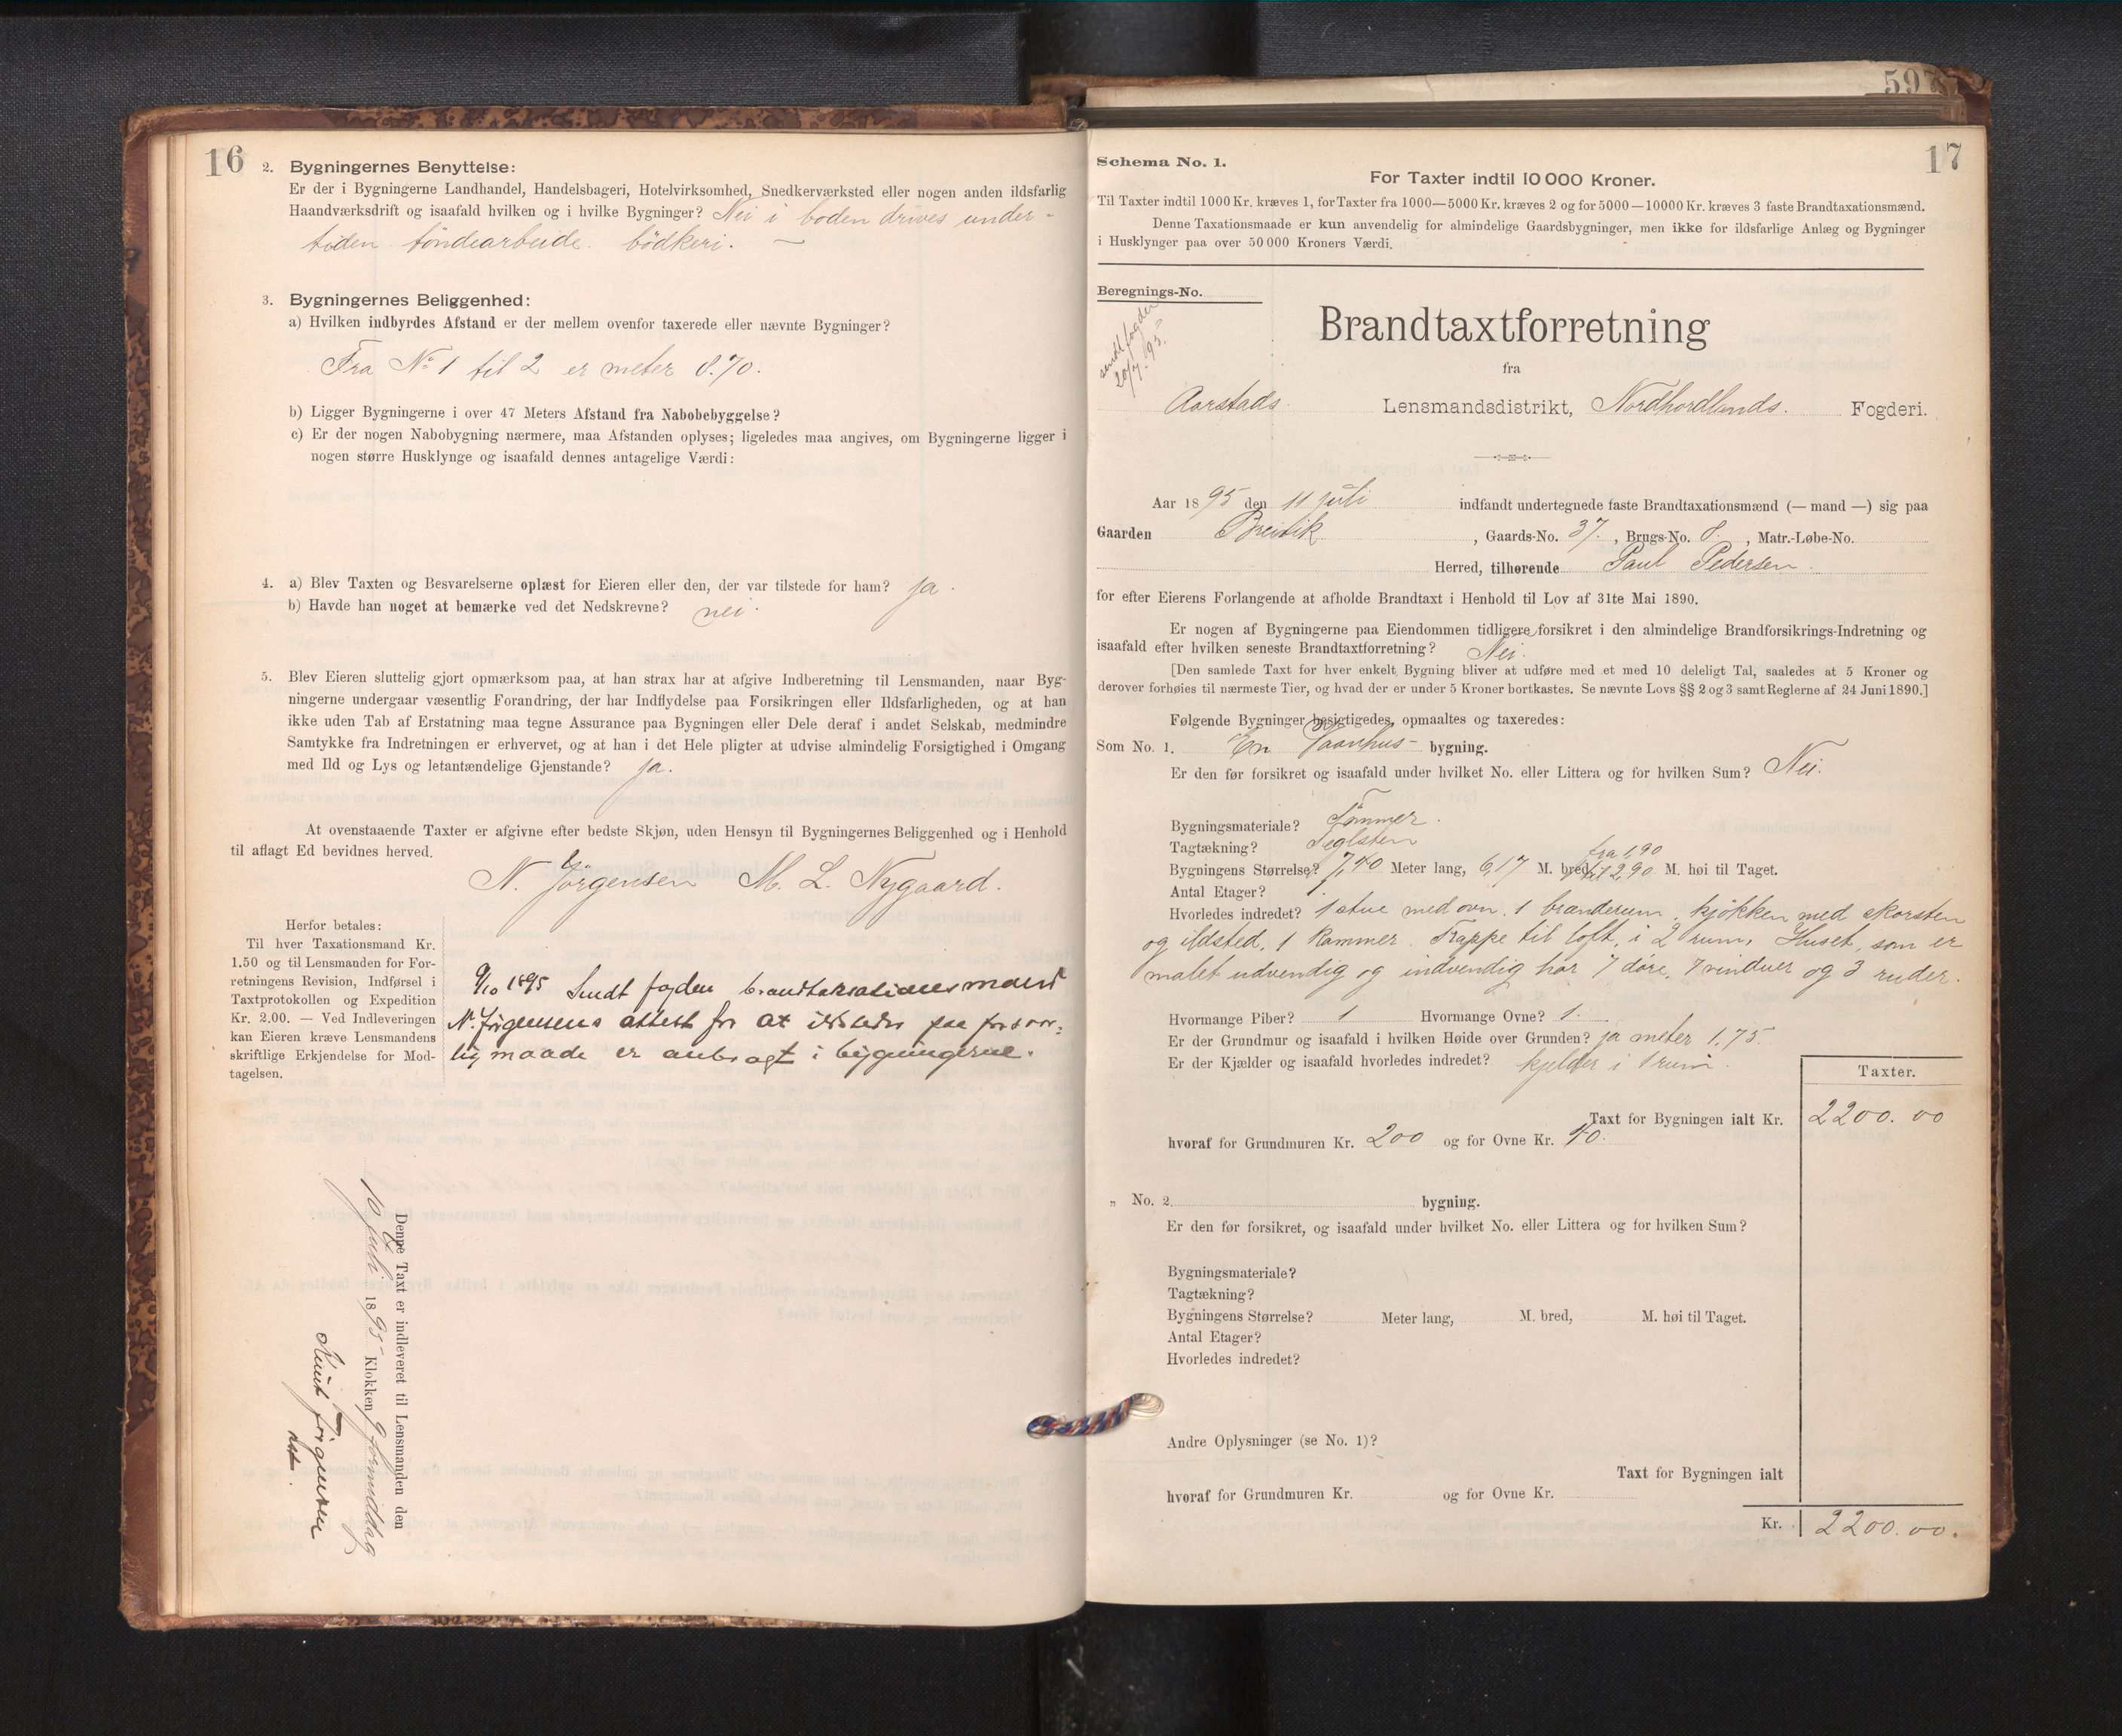 16
2. Bygningernes Benyttelse:
Er der i Bygningerne Landhandel, Handelsbageri, Hotelvirksomhed, Snedkerværksted eller nogen anden ildsfarlig
Haandværksdrift og isaafald hvilken og i hvilke Bygninger? Nei i boden drives under-
tiden töndearbeide. bödkeri. —
3. Bygningernes Beliggenhed:
a) Hvilken indbyrdes Afstand er der mellem ovenfor taxerede eller nævnte Bygninger?
Fra No 1 til 2 er meter 8.70.
b) Ligger Bygningerne i over 47 Meters Afstand fra Nabobebyggelse?
c) Er der nogen Nabobygning nærmere, maa Afstanden oplyses; ligeledes maa angives, om Bygningerne ligger i
nogen større Husklynge og isaafald dennes antagelige Værdi:
4. a) Blev Taxten og Besvarelserne oplæst for Eieren eller den, der var tilstede for ham? ja.
b) Havde han noget at bemærke ved det Nedskrevne? nei.
5. Blev Eieren sluttelig gjort opmærksom paa, at han strax har at afgive Indberetning til Lensmanden, naar Byg-
ningerne undergaar væsentlig Forandring, der har Indflydelse paa Forsikringen eller Ildsfarligheden, og at han
ikke uden Tab af Erstatning maa tegne Assurance paa Bygningen eller Dele deraf i andet Selskab, medmindre
Samtykke fra Indretningen er erhvervet, og at han i det Hele pligter at udvise almindelig Forsigtighed i Omgang
med Ild og Lys og letantændelige Gjenstande? ja.
At ovenstaaende Taxter er afgivne efter bedste Skjøn, uden Hensyn til Bygningernes Beliggenhed og i Henhold
til aflagt Ed bevidnes herved.
N. Jörgensen M. L. Nygaard.
Herfor betales:
Til hver Taxationsmand Kr.
1.50 og til Lensmanden for For-
retningens Revision, Indførsel i
Taxtprotokollen og Expedition
Kr. 2.00. — Ved Indleveringen
kan Eieren kræve Lensmandens
skriftlige Erkjendelse for Mod-
tagelsen.
9/10 1895 Sendt fogden brandtaxationsmand
N. Jörgensens attest for at ildsteder paa forsvar-
lig maade er anbragt i bygningerne.
Denne Taxt er indleveret til Lensmanden den
10 juli 1895 Klokken 9 formiddag
Knut Jörgensen
17
Schema No. 1.
For Taxter indtil 10 000 Kroner.
Til Taxter indtil 1000 Kr. kræves 1, for Taxter fra 1000—5000 Kr. kræves 2 og for 5000—10000 Kr. kræves 3 faste Brandtaxationsmænd.
Denne Taxationsmaade er kun anvendelig for almindelige Gaardsbygninger, men ikke for ildsfarlige Anlæg og Bygninger
i Husklynger paa over 50 000 Kroners Værdi.
Beregnings-No.
sendt fogden
20/7. 95.
Brandtaxtforretning
fra
Aarstads Lensmandsdistrikt, Nordhordlands. Fogderi.
Aar 1895 den 11 juli indfandt undertegnede faste Brandtaxationsmænd (— mand —) sig paa
Gaarden Breivik, Gaards-No. 37., Brugs-No. 8., Matr.-Løbe-No.
Herred, tilhørende Paul Pedersen.
for efter Eierens Forlangende at afholde Brandtaxt i Henhold til Lov af 31te Mai 1890.
Er nogen af Bygningerne paa Eiendommen tidligere forsikret i den almindelige Brandforsikrings-Indretning og
isaafald efter hvilken seneste Brandtaxtforretning? Nei.
[Den samlede Taxt for hver enkelt Bygning bliver at udføre med et med 10 deleligt Tal, saaledes at 5 Kroner og
derover forhøies til nærmeste Tier, og hvad der er under 5 Kroner bortkastes. Se nævnte Lovs §§ 2 og 3 samt Reglerne af 24 Juni 1890.]
Følgende Bygninger besigtigedes, opmaaltes og taxeredes:
Som No. 1. En Vaanhus- bygning.
Er den før forsikret og isaafald under hvilket No. eller Littera og for hvilken Sum? Nei.
Bygningsmateriale? Tömmer.
Tagtækning? Teglsten
fra 1,90
Bygningens Størrelse? 7,40 Meter lang, 6,17 M. bred, til 2,90 M. høi til Taget.
Antal Etager? 1
Hvorledes indredet? 1 stue med ovn. 1 branderum, kjökken med skorsten
og ildsted, 1 kammer. Trappe til loft, i 2 rum, Huset, som er
malet udvendig og indvendig har 7 döre, 7 vinduer og 3 ruder.
Hvormange Piber? 1 Hvormange Ovne? 1.
Er der Grundmur og isaafald i hvilken Høide over Grunden? ja meter 1,75.
Er der Kjælder og isaafald hvorledes indredet? kjelder i 1 rum.
Taxter.
Taxt for Bygningen ialt Kr. 2200.00
hvoraf for Grundmuren Kr. 200 og for Ovne Kr. 40.
„ No. 2 bygning.
Er den før forsikret, og isaafald under hvilket No. eller Littera og for hvilken Sum?
Bygningsmateriale?
Tagtækning?
Bygningens Størrelse? Meter lang, M. bred, M. høi til Taget.
Antal Etager?
Hvorledes indredet?
Andre Oplysninger (se No. 1)?
Taxt for Bygningen ialt
hvoraf for Grundmuren Kr. og for Ovne Kr.
Kr. 2200.00.
597